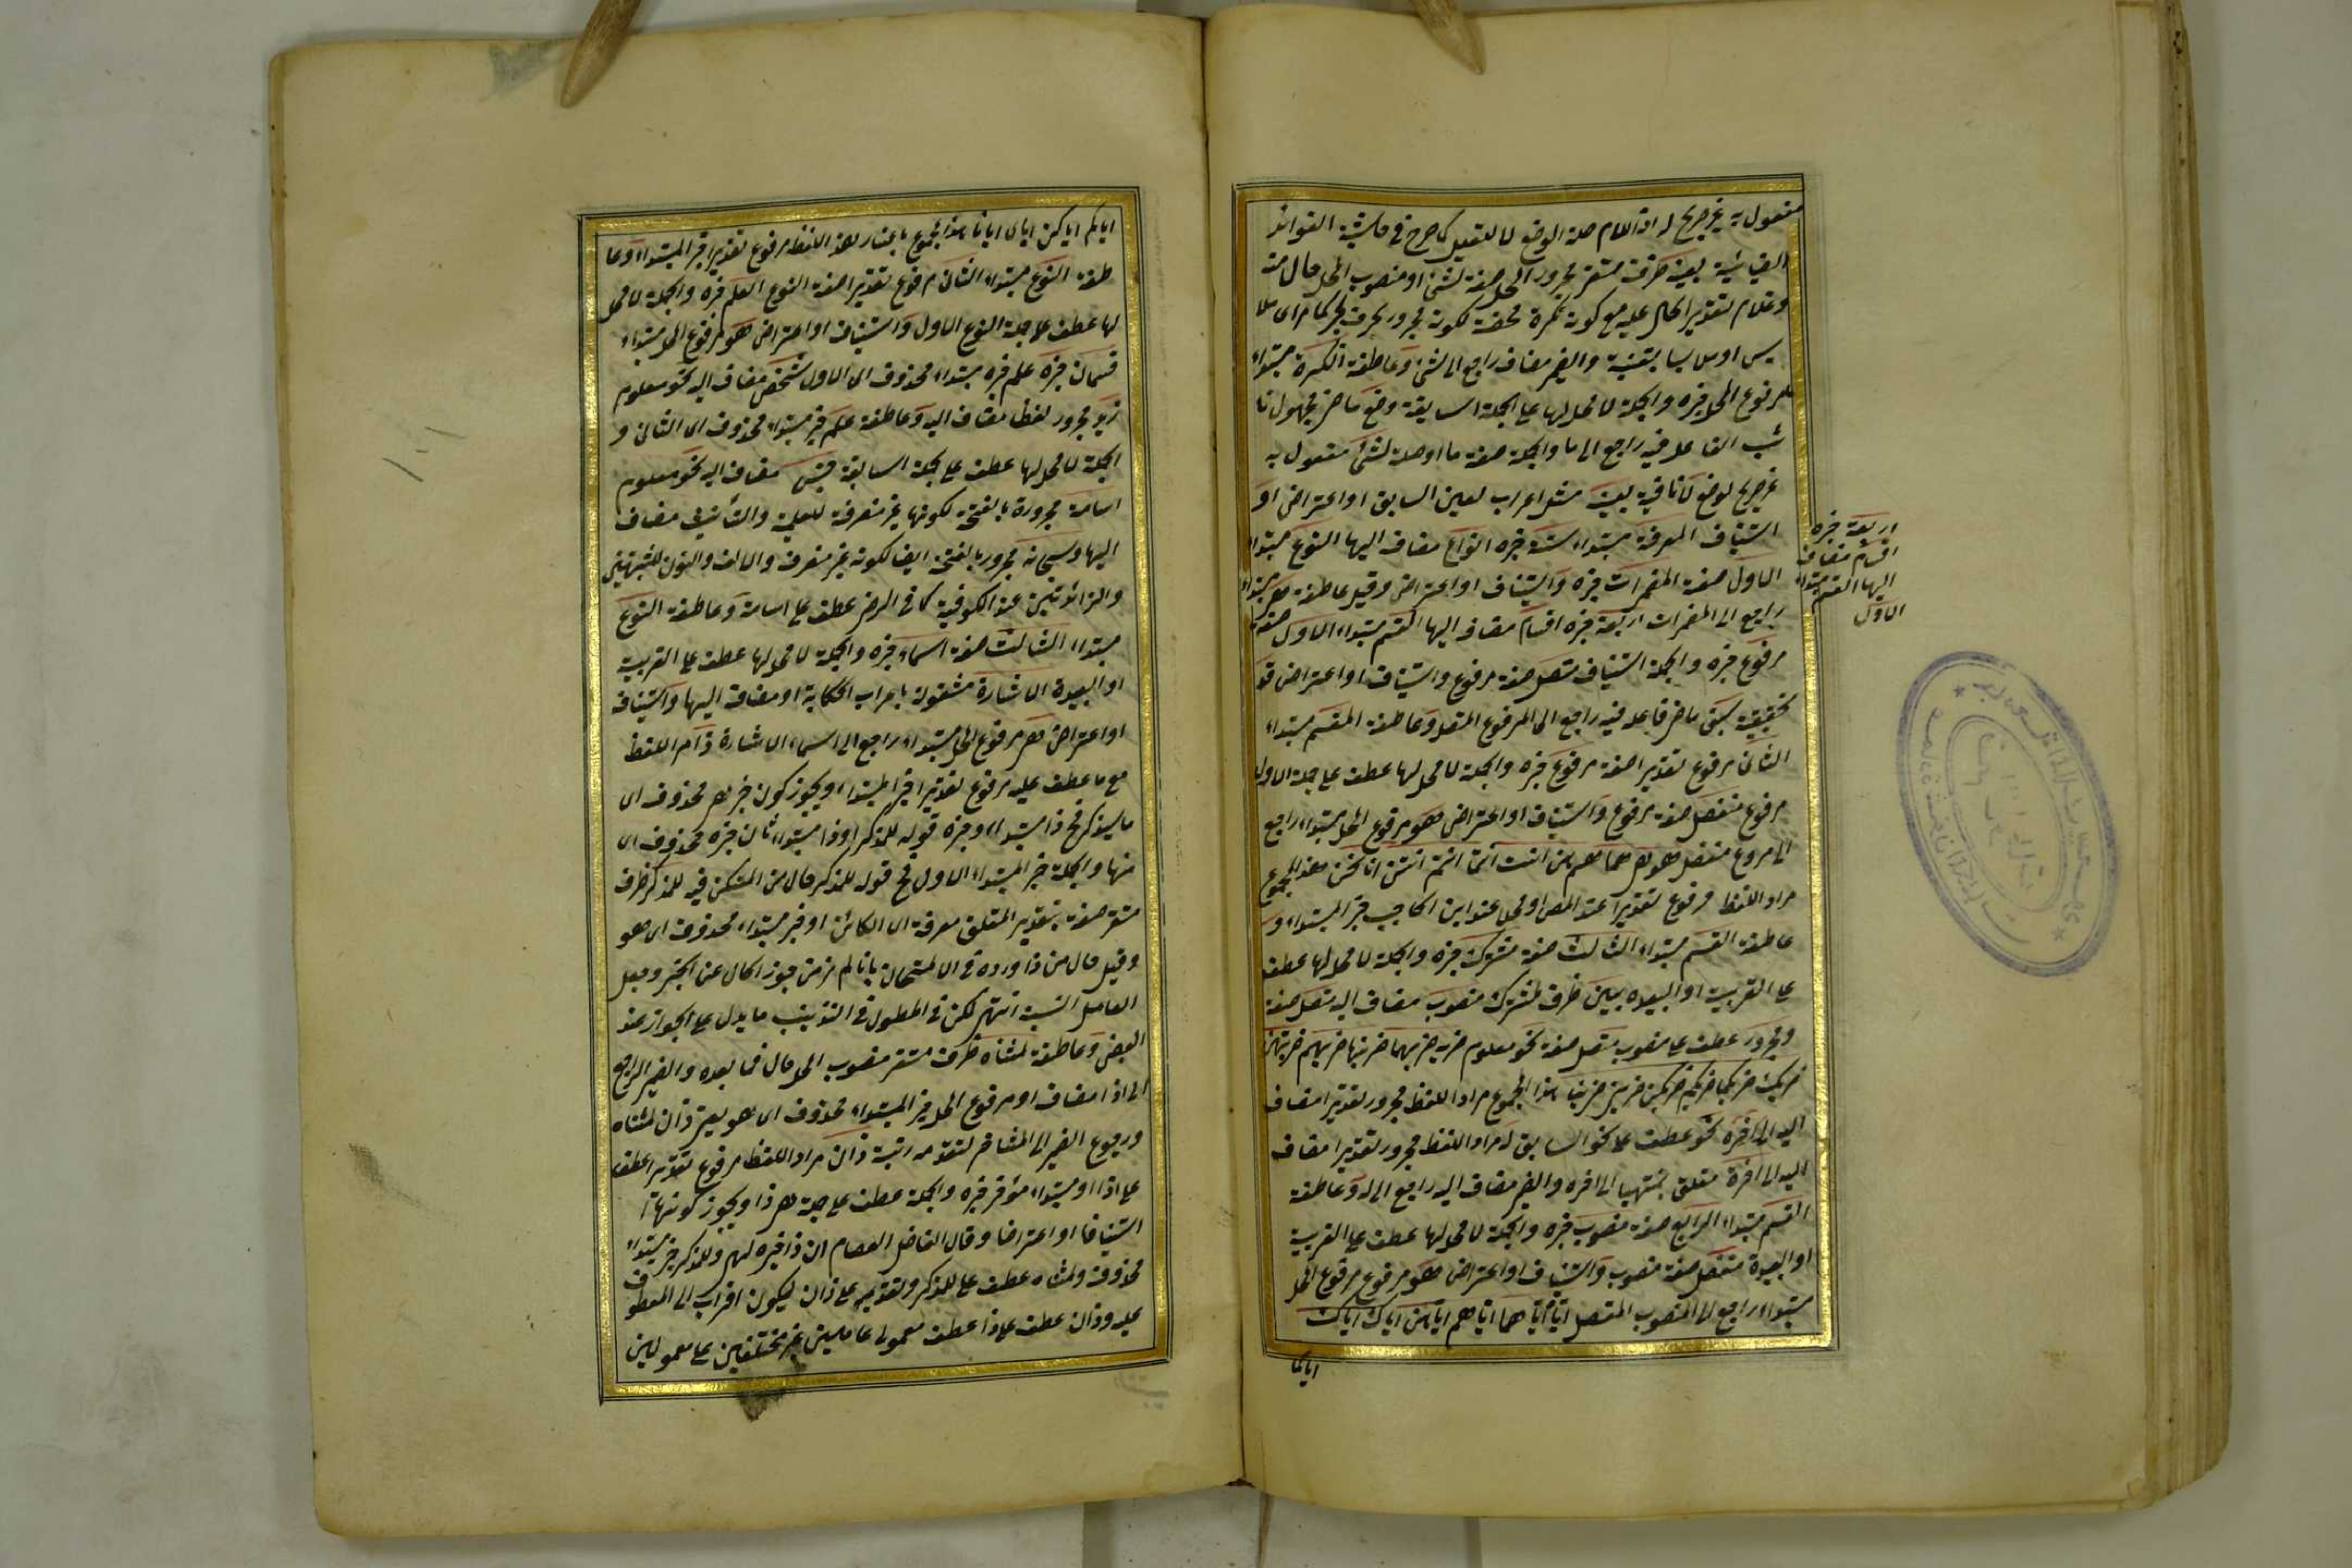 مفعول به غير صريح له اذ اللام صلة الوضع لا للتعليل كما صرح في حاشية الفوائد
الضيائية بعينه ظرف مستقر مجرور المحل صفة لشئ او منصوب المحل حال منه
وعدم تقدير الحال عليه مع كونه نكرة محضة لكونه مجرور بحرف الجر كما مر
والضمير مضاف راجع الى شئ وعاطفة النكرة مبتداء
مرفوع المحل خبره والجملة لا محل لها على الجملة السابقة وضع ماض مجهول نا
ئب الفاعل فيه راجع الى ما والجملة صفة ما او صلة لشئ مفعول به
غير صريح لوضع لا نافية بعينه مثل اعراب بعين السابق او اعتراض او
استيناف المعرفة مبتداء ستة خبره انواع مضاف اليها النوع مبتداء
الاول صفة المضمرات خبره واستيناف او اعتراض وقيل عاطفة هى مبتداء
راجع الى المضمرات اربعة خبره اقسام مضاف اليها القسم مبتداء الاول صفة
مرفوع خبره والجملة استيناف متصل صفة مرفوع واستيناف او اعتراض قد
تحقيقية سبق ماض فاعله فيه راجع الى المرفوع المتصل وعاطفة القسم مبتداء
الثانى مرفوع تقديرا صفة مرفوع خبره والجملة لا محل لها عطف على جملة الاول
مرفوع منفصل صفة مرفوع واستيناف او اعتراض وهو مرفوع المحل مبتداء راجع
الى مرفوع منفصل هو هى هما هم هن انت انتما انتم انتن انا نحن هذا المجموع
مراد اللفظ مرفوع تقديرا عند المص او محلا عند ابن الحاجب خبر المبتداء و
عاطفة القسم مبتداء الثالث صفة مشترك خبره والجملة لا محل لها عطف
على القريبة او البعيدة بين ظرف لمشترك منصوب مضاف اليه متصل صفة
ومجرور عطف على منصوب متصل صفة نحو معلوم ضربه ضربهما ضربها ضربهم ضربهن
ضربك ضربكما ضربكم ضربكن ضربنى ضربنا هذا المجموع مراد اللفظ مجرور تقديرا مضاف
اليه الى آخره نحو عطف على نحو السابق له مراد اللفظ مجرور تقديرا مضاف
اليه الى اخره متعلق بمنتهيا الى اخره والضمير مضاف اليه راجع الى له وعاطفة
القسم مبتداء الرابع صفة منصوب خبره والجملة لا محل لها عطف على القريبة
او البعيدة منفصل صفة منصوب واستيناف او اعتراض وهو مرفوع مرفوع المحل
مبتداء راجع الى المنصوب المنفصل اياه اياها اياهما اياهم اياهن اياك اياك
اياكما
اربعة خبره
اقسام مضاف
اليها القسم مبتداء
الاول
اياكم اياكن اياى ايانا هذا المجموع باعتبار هذا اللفظ مرفوع تقديرا خبر المبتداء وعا
طفة النوع مبتداء الثانى مرفوع تقديرا صفة النوع العلم خبره والجملة لا محل
لها عطف على جملة النوع الاول واستيناف او اعتراض هو مرفوع المحل مبتداء
قسمان خبره علم خبر مبتداء محذوف اى الاول شخص مضاف اليه نحو معلوم
زيد مجرور لفظا مضاف اليه وعاطفة علم خبر مبتداء محذوف اى الثانى و
الجملة لا محل لها عطف على جملة السابقة جنس مضاف اليه نحو معلوم
اسامة مجرورة بالفتحة لكونها غير منصرفة للعلمية والتأنيث مضاف
اليها وسبحانه مجرور بالفتحة ايضا لكونه غير منصرف والالف والنون المشبهتين
والزائدتين عند الكوفية كما فى الرضى عطف على اسامة وعاطفة النوع
مبتداء الثالث صفة اسماء خبره والجملة لا محل لها عطف على القريبة
او البعيدة الاشارة مشغولة باعراب الحكاية او مضافة اليها واستيناف
او اعتراض هى مرفوع المحل مبتداء راجع الى اسماء الاشارة ذا مراد اللفظ
مع ما عطف عليه مرفوع تقديرا خبر المبتداء ويجوز كون خبر هى محذوف اى
ما سيذكر فح ذا مبتداء وخبره قوله للمذكر او ذا مبتداء ثان خبره محذوف اى
منها والجملة خبر المبتداء الاول فح قوله للمذكر حال من المستكن فيه للمذكر ظرف
مستقر صفة بتقدير المتعلق معرفة اى الكائن او خبر مبتداء محذوف اى هو
وقيل حال من ذا ورده فى الامتحان بانا لم نر من جوز الحال عن الخبر وجعل
العامل النسبة انتهى لكن فى المطول فى التذنيب ما يدل على الجواز عند
البعض وعاطفة لمثناه ظرف مستقر منصوب المحل حال فما بعده والضمير الراجع
الى ذا مضاف او مرفوع المحل خبر المبتداء محذوف اى هو يعنى ذان لمثناه
ورجوع الضمير الى المتأخر لتقدمه رتبة ذان مراد اللفظ مرفوع تقديرا عطف
على ذا او مبتداء مؤخر خبره والجملة عطف على جملة هى ذا ويجوز كونها
استينافا او اعتراضا وقال الفاضل العصام ان ذا خبره لهم وللمذكر خبر مبتداء
محذوف ولمثناه عطف على للمذكر وتقديمه على ذان ليكون اقرب الى المعطوف
عليه وذان عطف على ذا عطف معمولى عاملين غير مختلفين على معمولين
١٠١